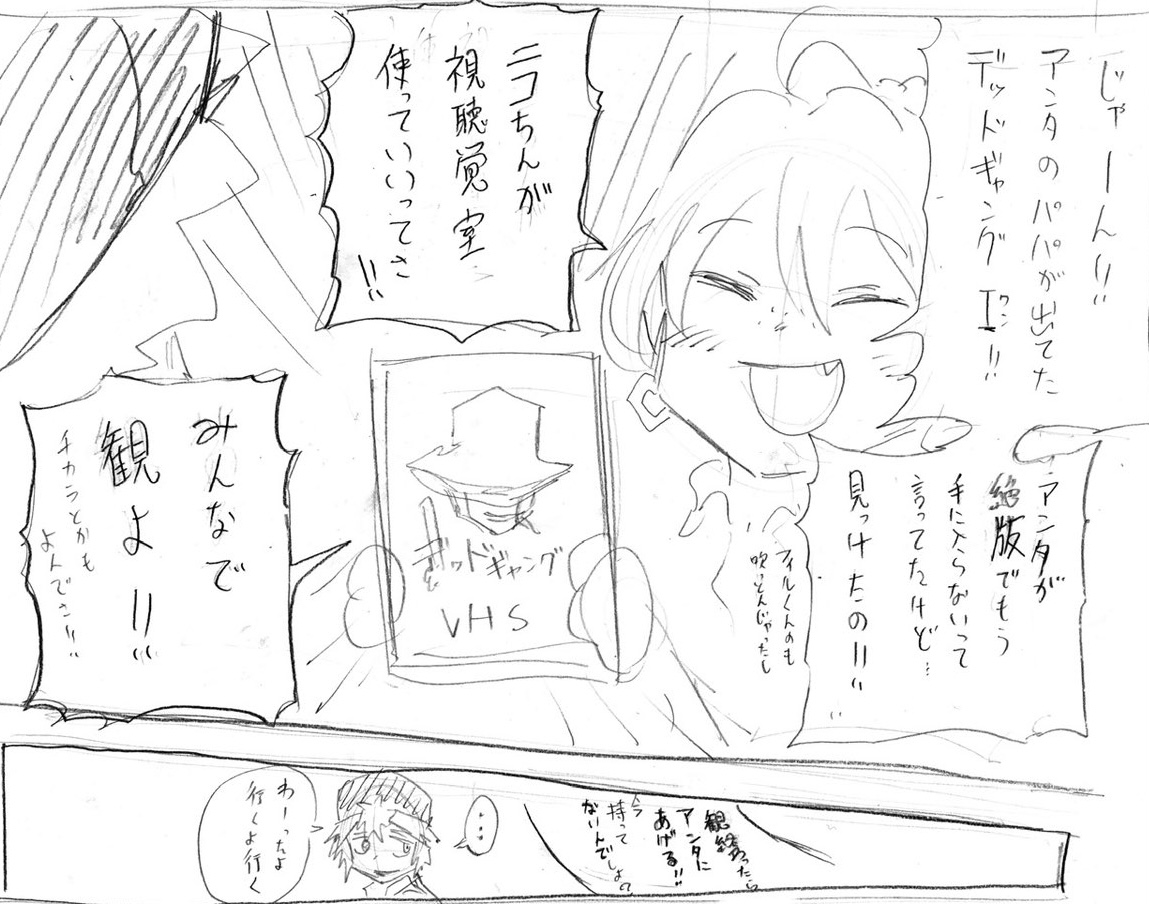 じゃーん!!
アンタのパパが出てた
デッドギャングⅠ!!
ワン
アンタが
絶版でもう
手に入らないって
言ってたけど…
見っけたの!!
フィルくんのも
吹いとんじゃったし
ニコちんが
視聴覚室
使っていいってさ
!!
デッドギャング
VHS
みんなで
観よ!!
チカラとかも
よんでさ!!
観終わったら
アンタに
あげる!!
今持って
ないんでしょ?
…
わーったよ
行くよ行く